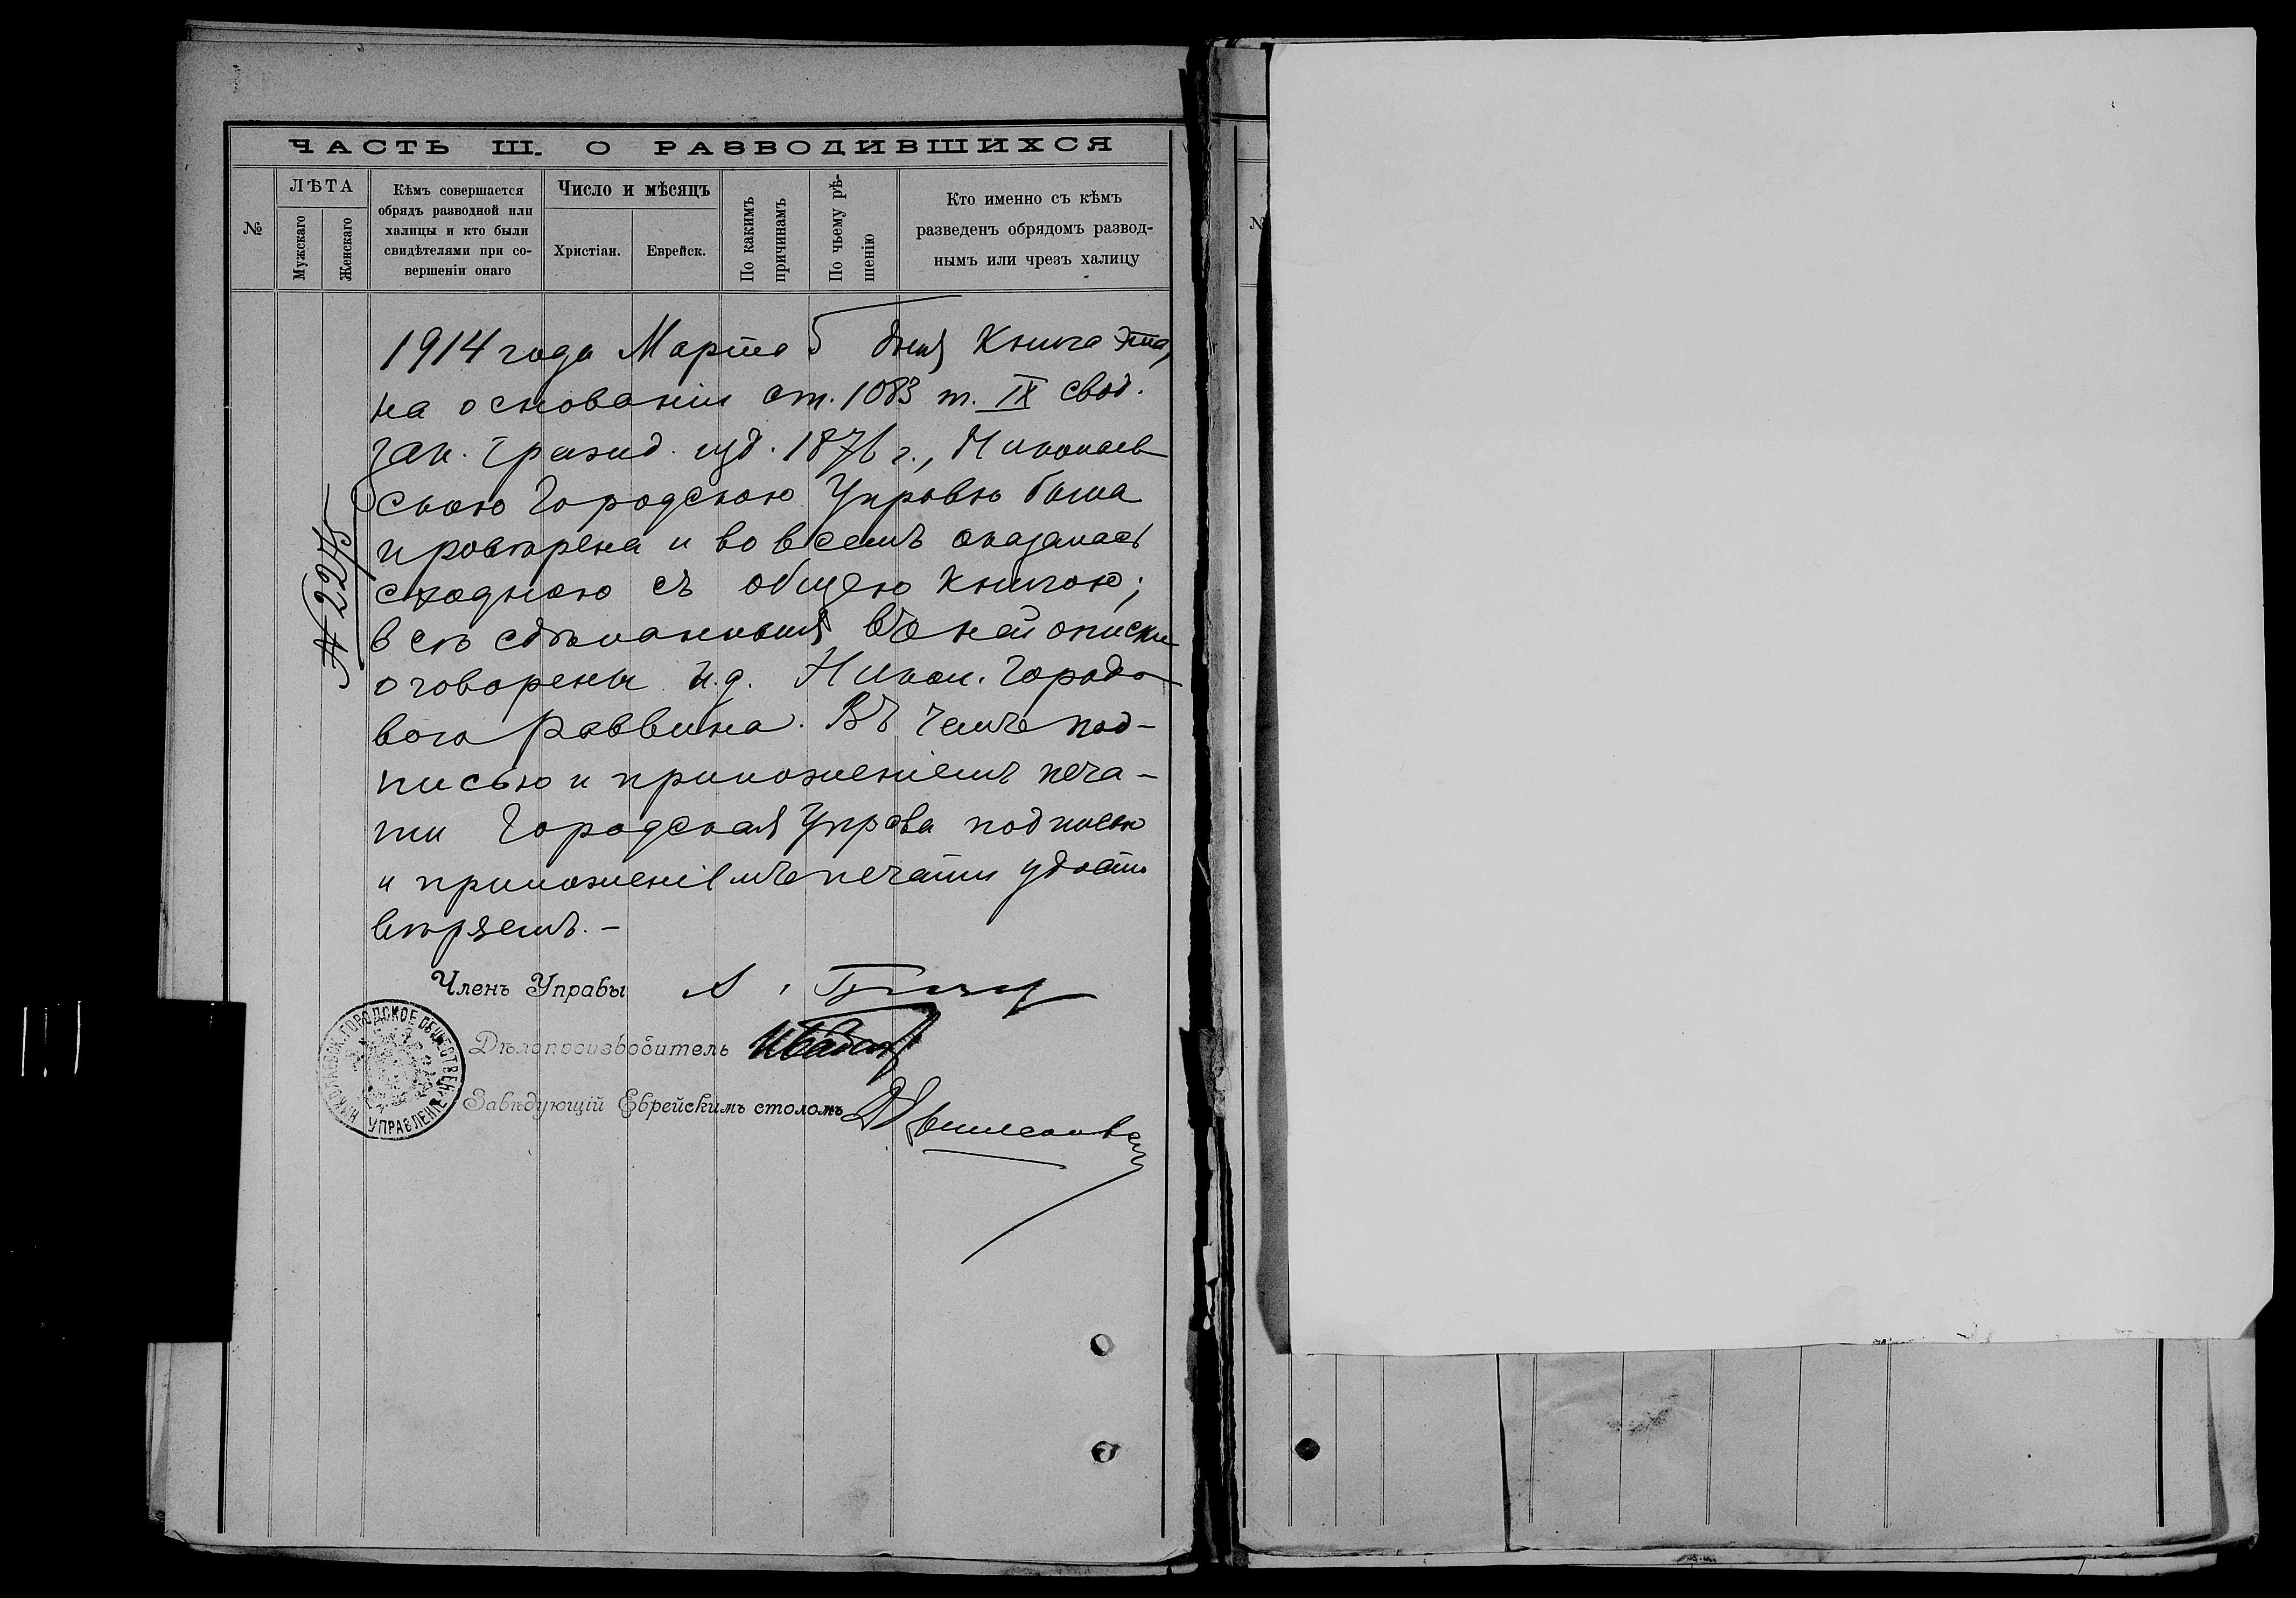 ЧАСТЬ III. О РАЗВОДИВШИХСЯ
№
ЛѢТА
Мужскаго
Женскаго
Кѣмъ совершается
обрядъ разводной или
халицы и кто были
свидѣтелями при со-
вершеніи онаго
Число и мѣсяцъ
Христіан.
Еврейск.
По какимъ
причинамъ
По чьему рѣ-
шенію
Кто именно съ кѣмъ
разведенъ обрядомъ развод-
нымъ или чрезъ халицу
№
1914 года Марта 5 дня Книга эта,
на основаніи ст. 1083 т. IX свод.
зак. Гражд. изд. 1876 г., Николаев
скою Городскою Управою была
провѣрена и во всемъ оказалась
сходною съ общею книгою;
всѣ сдѣланныя въ ней описки
оговорены И.д. Никол. Городо
вого Раввина. Въ чемъ под-
писью и приложеніемъ печа-
ти Городская Управа подписью
и приложеніемъ печати удосто
вѣряетъ. -
№ 2275
Членъ Управы
Дѣлопроизводитель
Завѣдующій Еврейскимъ столомъ
НИКОЛАЕВСК. ГОРОДСКОЕ ОБЩЕСТВЕН. УПРАВЛЕНІЕ